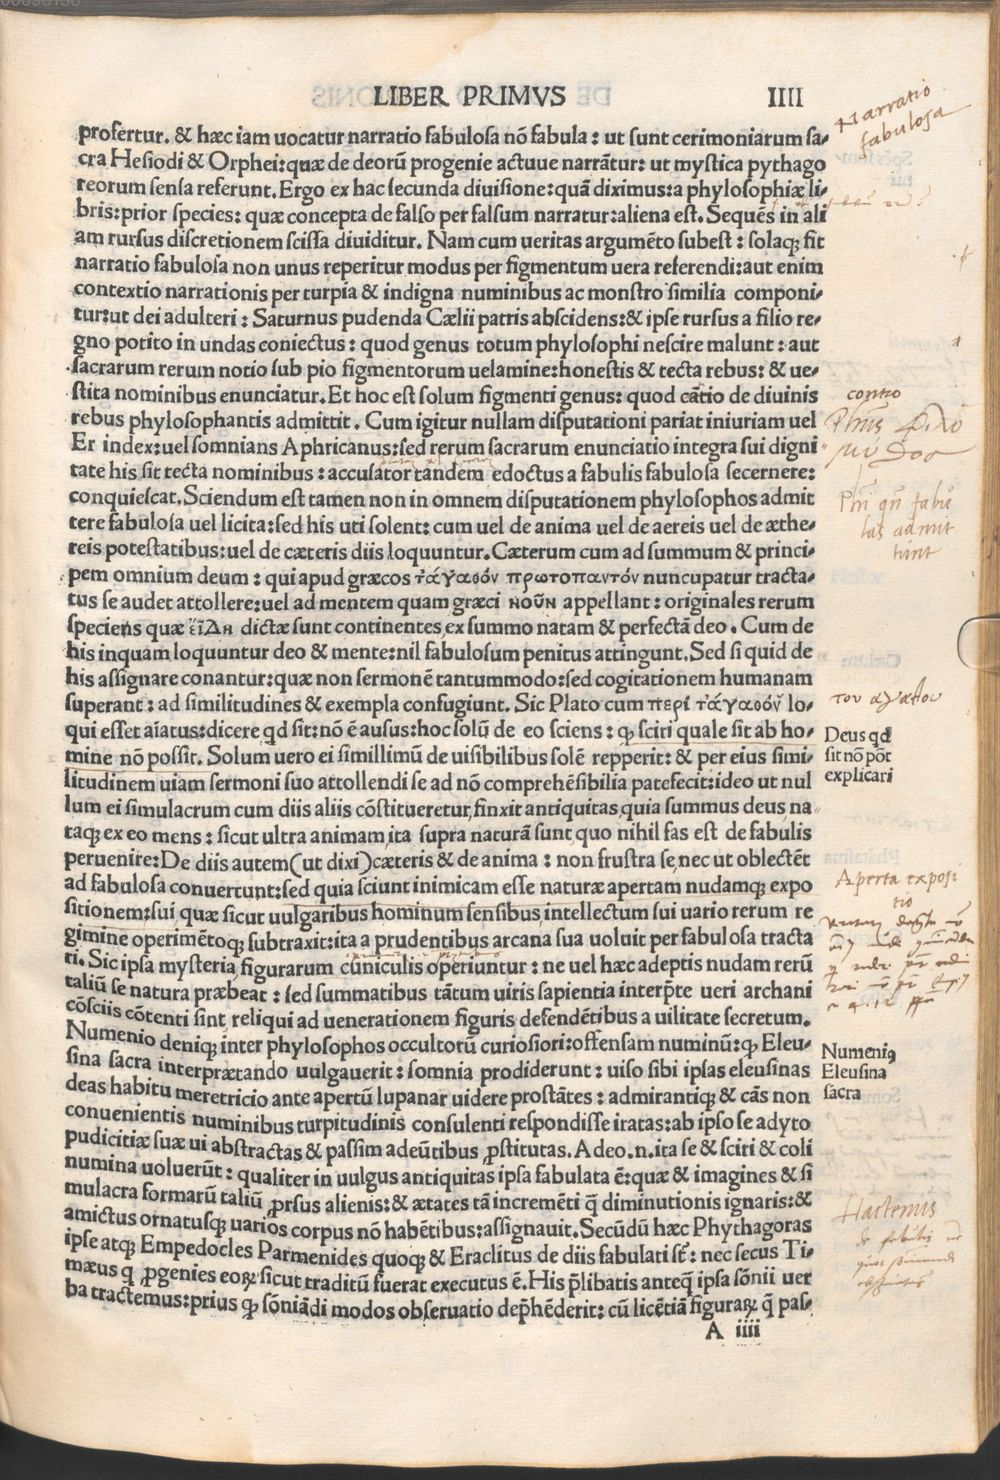 LIBER PRIMVS IIII
profertur. & hæc iam uocatur narratio fabulosa nõ fabula : ut sunt cerimoniarum sa-
cra Hesiodi & Orphei: quæ de deorũ progenie actuue narrãtur: ut mystica pythago
reorum sensa referunt. Ergo ex hac secunda diuisione: quã diximus: a phylosophiæ li-
bris: prior species: quæ concepta de falso per falsum narratur: aliena est. Sequẽs in ali
am rursus discretionem scissa diuiditur. Nam cum ueritas argumẽto subest : solaqꝫ fit
narratio fabulosa non unus reperitur modus per figmentum uera referendi: aut enim
contextio narrationis per turpia & indigna numinibus ac monstro similia componi-
tur: ut dei adulteri : Saturnus pudenda Cælii patris abscidens: & ipse rursus a filio re-
gno potito in undas coniectus : quod genus totum phylosophi nescire malunt : aut
sacrarum rerum notio sub pio figmentorum uelamine: honestis & tecta rebus: & ue-
stita nominibus enunciatur. Et hoc est solum figmenti genus: quod cãtio de diuinis
rebus phylosophantis admittit. Cum igitur nullam disputationi pariat iniuriam uel
Er index: uel somnians Aphricanus: sed rerum sacrarum enunciatio integra sui digni
tate his sit tecta nominibus : accusator tandem edoctus a fabulis fabulosa secernere:
conquiescat. Sciendum est tamen non in omnem disputationem phylosophos admit
tere fabulosa uel licita: sed his uti solent: cum uel de anima uel de aereis uel de æthe-
reis potestatibus: uel de cæteris diis loquuntur. Cæterum cum ad summum & princi-
pem omnium deum : qui apud græcos τἀγαθόν πρωτοπαντόν nuncupatur tracta-
tus se audet attollere: uel ad mentem quam græci νοῦν appellant : originales rerum
speciens quæ εἴδη dictæ sunt continentes, ex summo natam & perfectã deo. Cum de
his inquam loquuntur deo & mente: nil fabulosum penitus attingunt. Sed si quid de
his assignare conantur: quæ non sermonẽ tantummodo: sed cogitationem humanam
superant : ad similitudines & exempla confugiunt. Sic Plato cum περί τἀγαθόν lo-
qui esset aĩatus: dicere qd sit: nõ ẽ ausus: hoc solũ de eo sciens : qꝫ sciri quale sit ab ho-
mine nõ possit. Solum uero ei simillimũ de uisibilibus solẽ repperit: & per eius simi-
litudinem uiam sermoni suo attollendi se ad nõ comprehẽsibilia patefecit: ideo ut nul
lum ei simulacrum cum diis aliis cõstitueretur, finxit antiquitas, quia summus deus, na-
taqꝫ ex eo mens : sicut ultra animam, ita supra naturã sunt, quo nihil fas est de fabulis
peruenire: De diis autem (ut dixi) cæteris & de anima : non frustra se, nec ut oblectẽt
ad fabulosa conuertunt: sed quia sciunt inimicam esse naturæ apertam nudamqꝫ expo
sitionem: sui quæ sicut uulgaribus hominum sensibus, intellectum sui uario rerum re
gimine operimẽtoqꝫ subtraxit: ita a prudentibus arcana sua uoluit per fabulosa tracta
ri. Sic ipsa mysteria figurarum cũniculis operiuntur : ne uel hæc adeptis nudam rerũ
taliũ se natura præbeat : sed summatibus tãtum uiris sapientia interp̃te ueri archani
cõsciis cõtenti sint reliqui ad uenerationem figuris defendẽtibus a uilitate secretum.
Numenio deniqꝫ inter phylosophos occultorũ curiosiori: offensam numinũ: qꝫ Eleu-
sina sacra interprætando uulgauerit : somnia prodiderunt : uiso sibi ipsas eleusinas
deas habitu meretricio ante apertũ lupanar uidere prostãtes : admirantiqꝫ & cãs non
conuenientis numinibus turpitudinis consulenti respondisse iratas: ab ipso se adyto
pudicitiæ suæ ui abstractas & passim adeũtibus ꝓstitutas. Adeo .n. ita se & sciri & coli
numina uoluerũt : qualiter in uulgus antiquitas ipsa fabulata ẽ: quæ & imagines & si
mulacra formarũ taliũ ꝓrsus alienis: & ætates tã incremẽti q̃ diminutionis ignaris: &
amictus ornatusqꝫ uarios corpus nõ habẽtibus: assignauit. Secũdũ hæc Phythagoras
ipse atqꝫ Empedocles Parmenides quoqꝫ & Eraclitus de diis fabulati sũt : nec secus Ti-
mæus q ꝓgenies eoꝝ sicut traditũ fuerat executus ẽ. His p̃libatis anteq̃ ipsa sõnii uer
ba tractemus: prius qꝫ sõniãdi modos obseruatio dep̃hẽderit: cũ licẽtiã figuraꝝ q̃ pas-
A iiii
Narratio
fabulosa
contio
τον αγαθου
Deus qd
sit nõ põt
explicari
Aperta exposi
tio
Numeniꝰ
Eleusina
sacra
Hactenus